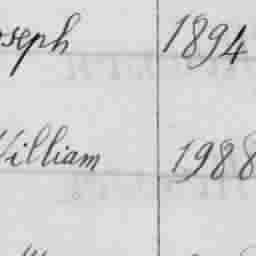 oseph 1894
William 1988